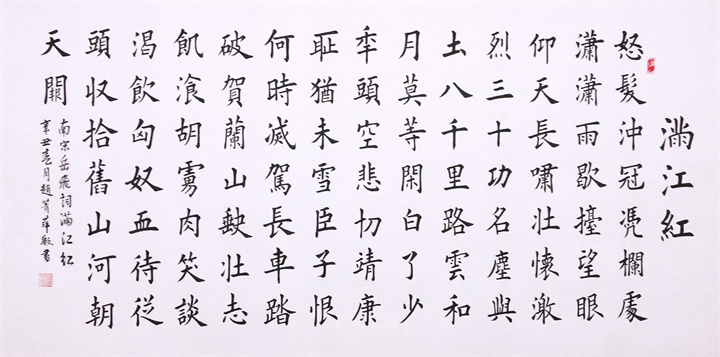 滿江紅
怒髮沖冠凴欄處
瀟瀟雨歇擡望眼
仰天長嘯壯懷激
烈三十功名塵與
土八千里路雲和
月莫等閑白了少
秊頭空悲切靖康
耻猶未雪臣子恨
何時滅駕長車踏
破賀蘭山缺壯志
飢湌胡虜肉笑談
渴飲匈奴血待從
頭收拾舊山河朝
天闕
南宋岳飛詞滿江紅
辛丑春月趙菁萍敬書